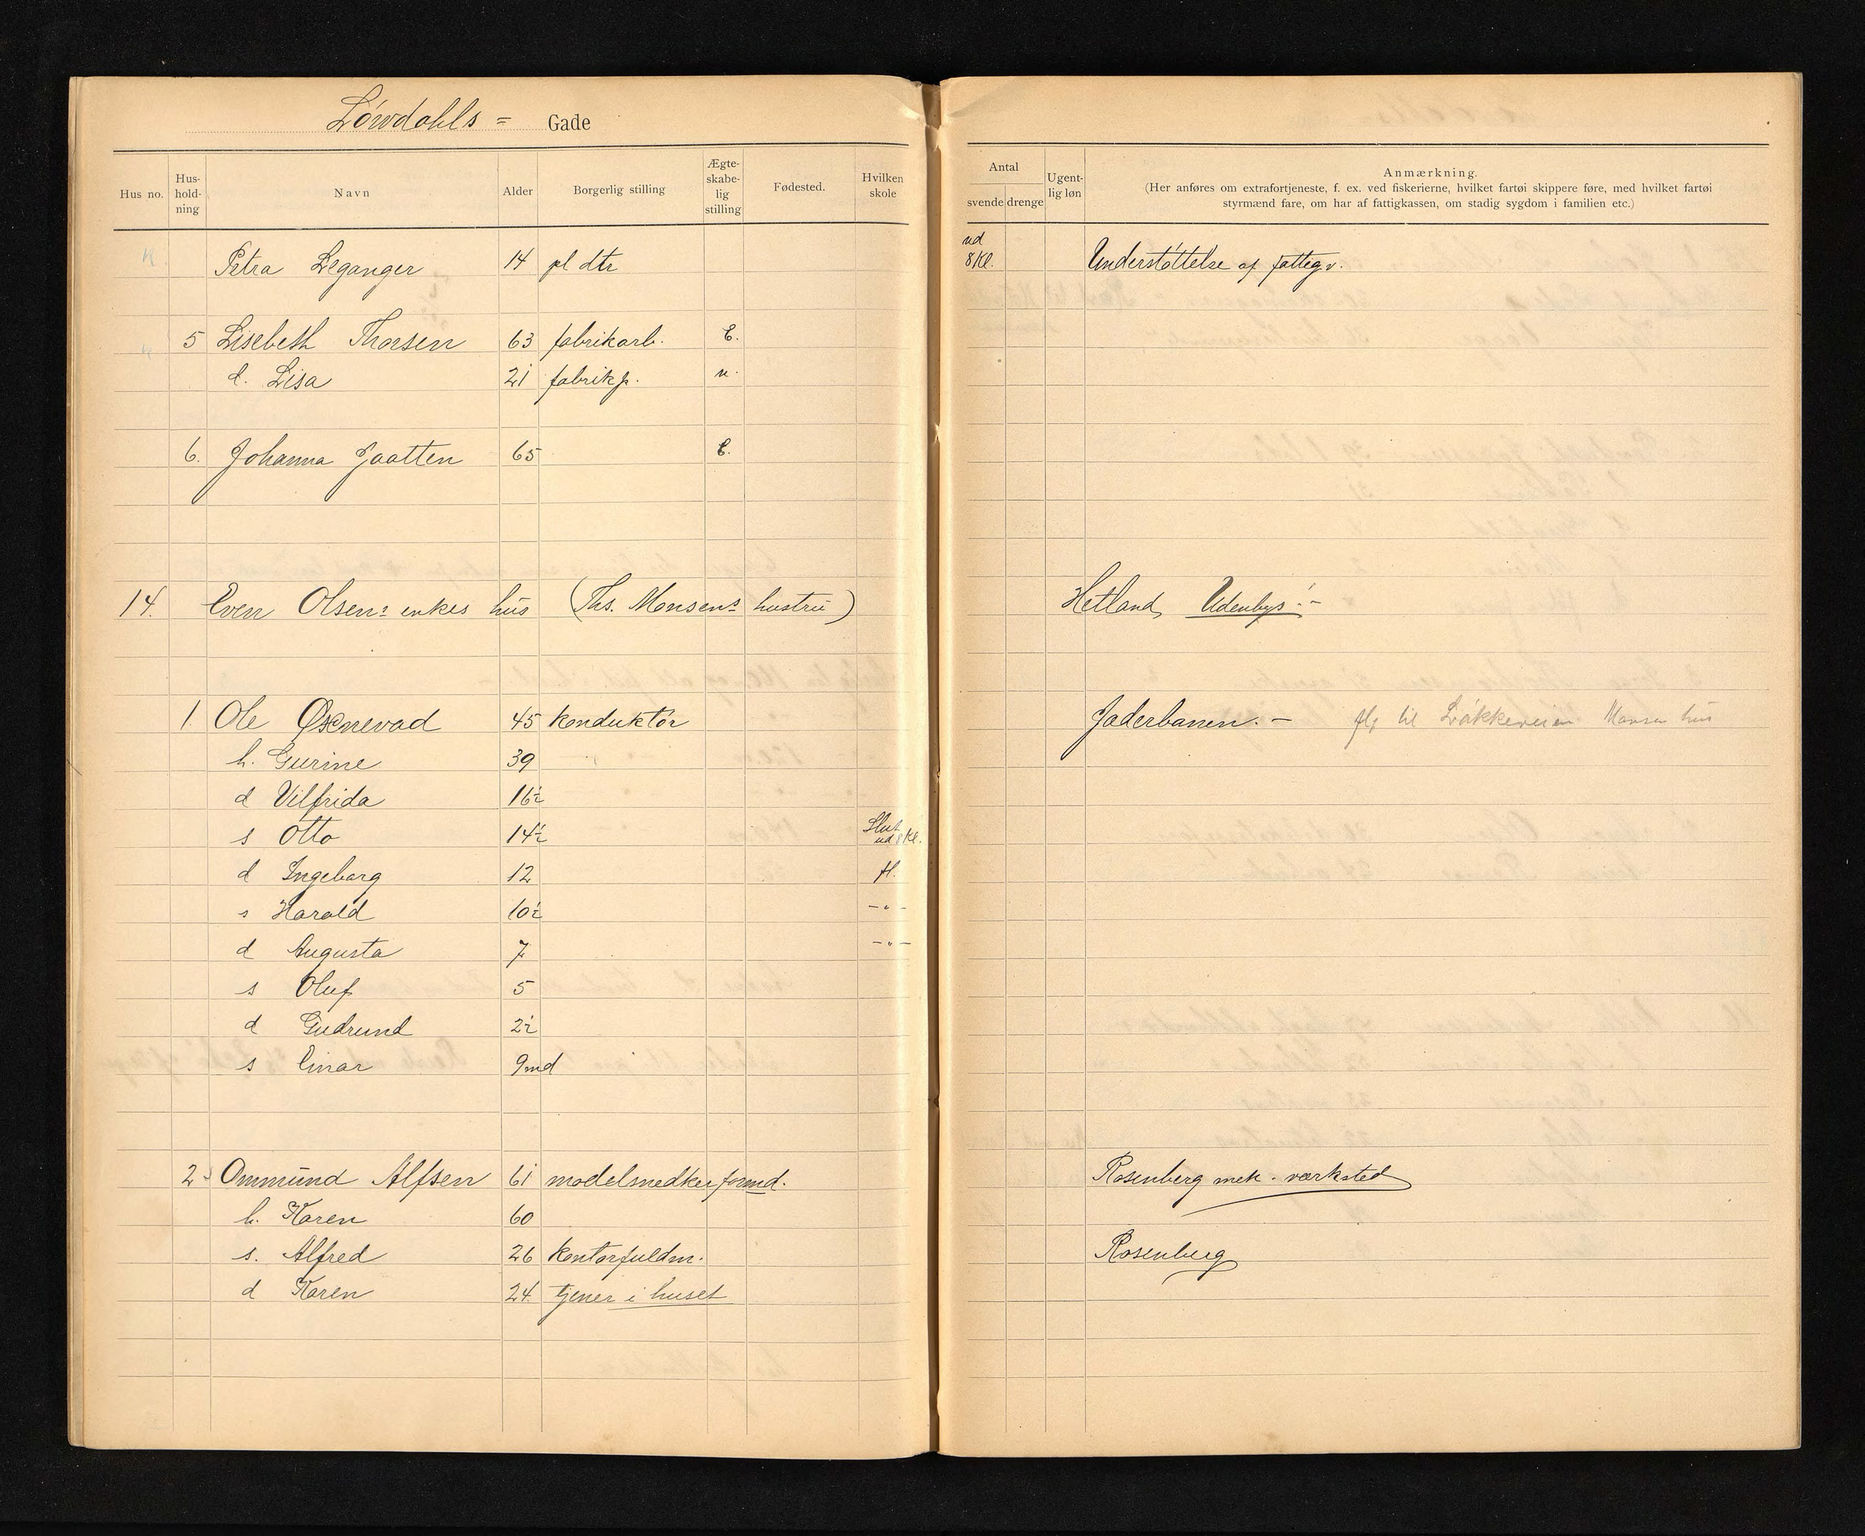 Løwdahls = Gade
Hus no. Hus-hold-ning Navn Alder Borgerlig stilling Ægte-skabe-lig stilling Fødested. Hvilken skole
Antal svende drenge Ugent-lig løn Anmærkning.
(Her anføres om extrafortjeneste, f. ex. ved fiskerierne, hvilket fartøi skippere føre, med hvilket fartøi
styrmænd fare, om har af fattigkassen, om stadig sygdom i familien etc.)
Petra Leganger 14 pl dtr ud 8 Kl. Understøttelse af fattigv.
5 Lisebeth Thorsen 63 fabrikarb. E.
d. Lisa 21 fabrikp. u.
6. Johanna Jaatten 65 E.
14. Even Olsens enkes hus (Ths. Monsens hustru) Hetland, Udenbys.
1 Ole Øxnevad 45 konduktør Jaderbanen. – fly til Løkkeveien Monsen hus
h. Gurine 39
d Vilfrida 16½
s Otto 14½ Slut ud 8 Kl.
d Ingeborg 12 H.
s Harald 10½ – " –
d Augusta 7 – " –
s Oluf 5
d Gudrund 2½
s Einar 9 md
2. Ommund Alfsen 61 modelsnedkerformd. Rosenberg mek. værksted
h. Karen 60
s. Alfred 26 kontorfuldm. Rosenberg
d Karen 24 tjener i huset